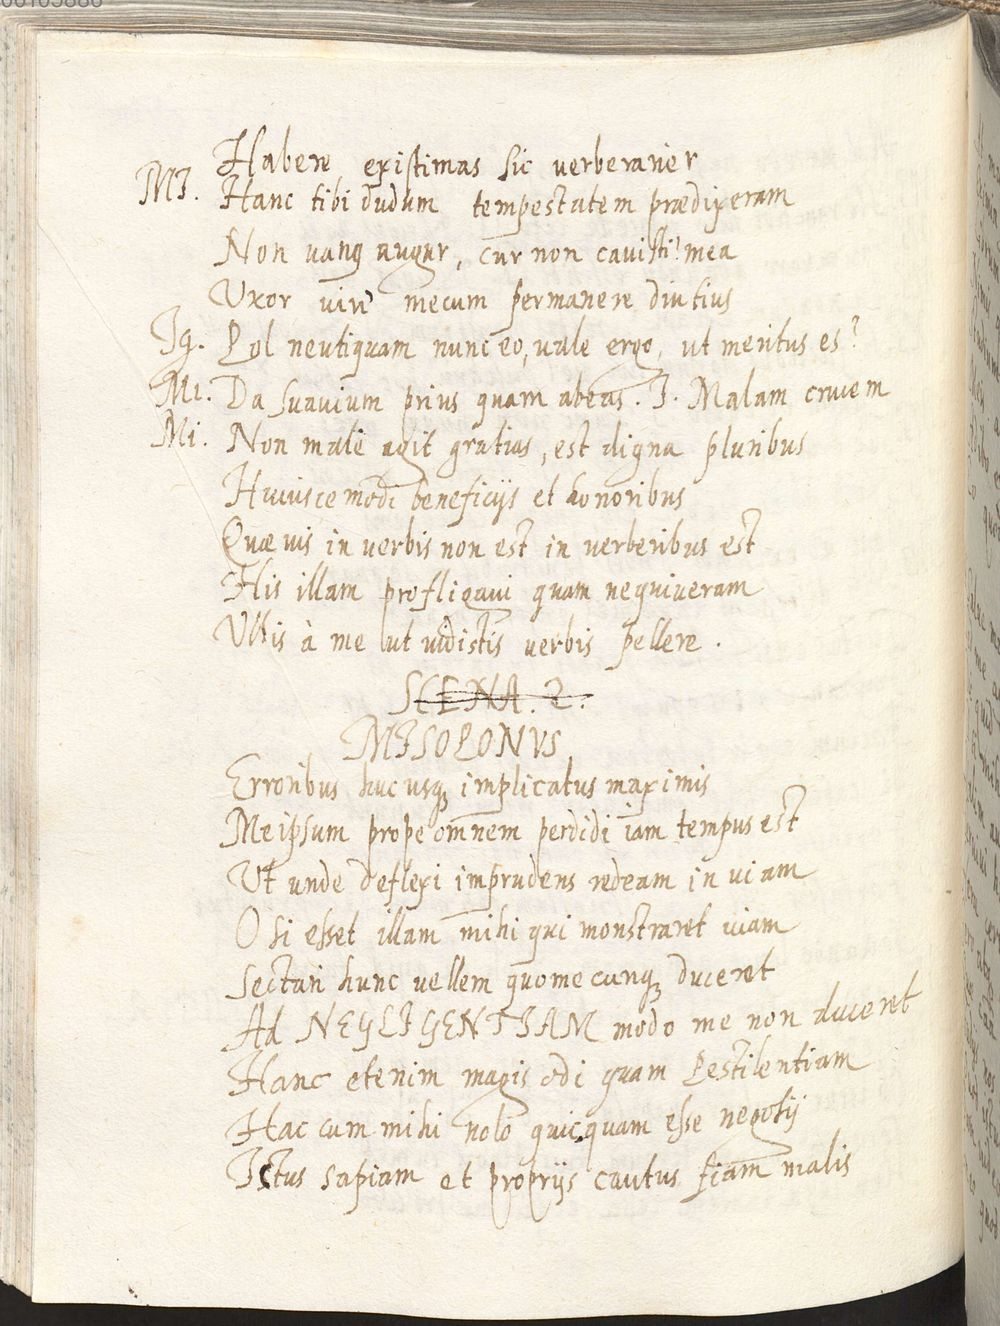 Habere existimas sic verberarier
MI. Hanc tibi dudum tempestatem prædixeram
Non vanq augur, cur non cavisti! mea
Uxor vin' mecum permanere diutius
Ig. Pol neutiquam nunc eo, vale ergo, ut meritus es?
Mi. Da suavium prius quam abeas. I. Malam crucem
Mi. Non male agit gratias, est digna pluribus
Huiuscemodi beneficijs et honoribus
Quæ vis in verbis non est in verberibus est
His illam profligavi quam nequiveram
Ullis à me ut vidistis verbis pellere.
SCENA. 2.
MISOPONVS
Erroribus huc usq implicatus maximis
Meipsum prope omnem perdidi iam tempus est
Ut unde deflexi imprudens redeam in viam
O si esset illam mihi qui monstraret viam
Sectari hunc vellem quomecunq duceret
Ad NEGLIGENTIAM modo me non duceret
Hanc etenim magis odi quam Pestilentiam
Hac cum mihi nolo quicquam esse negotij
Ictus sapiam et proprijs cautus fiam malis